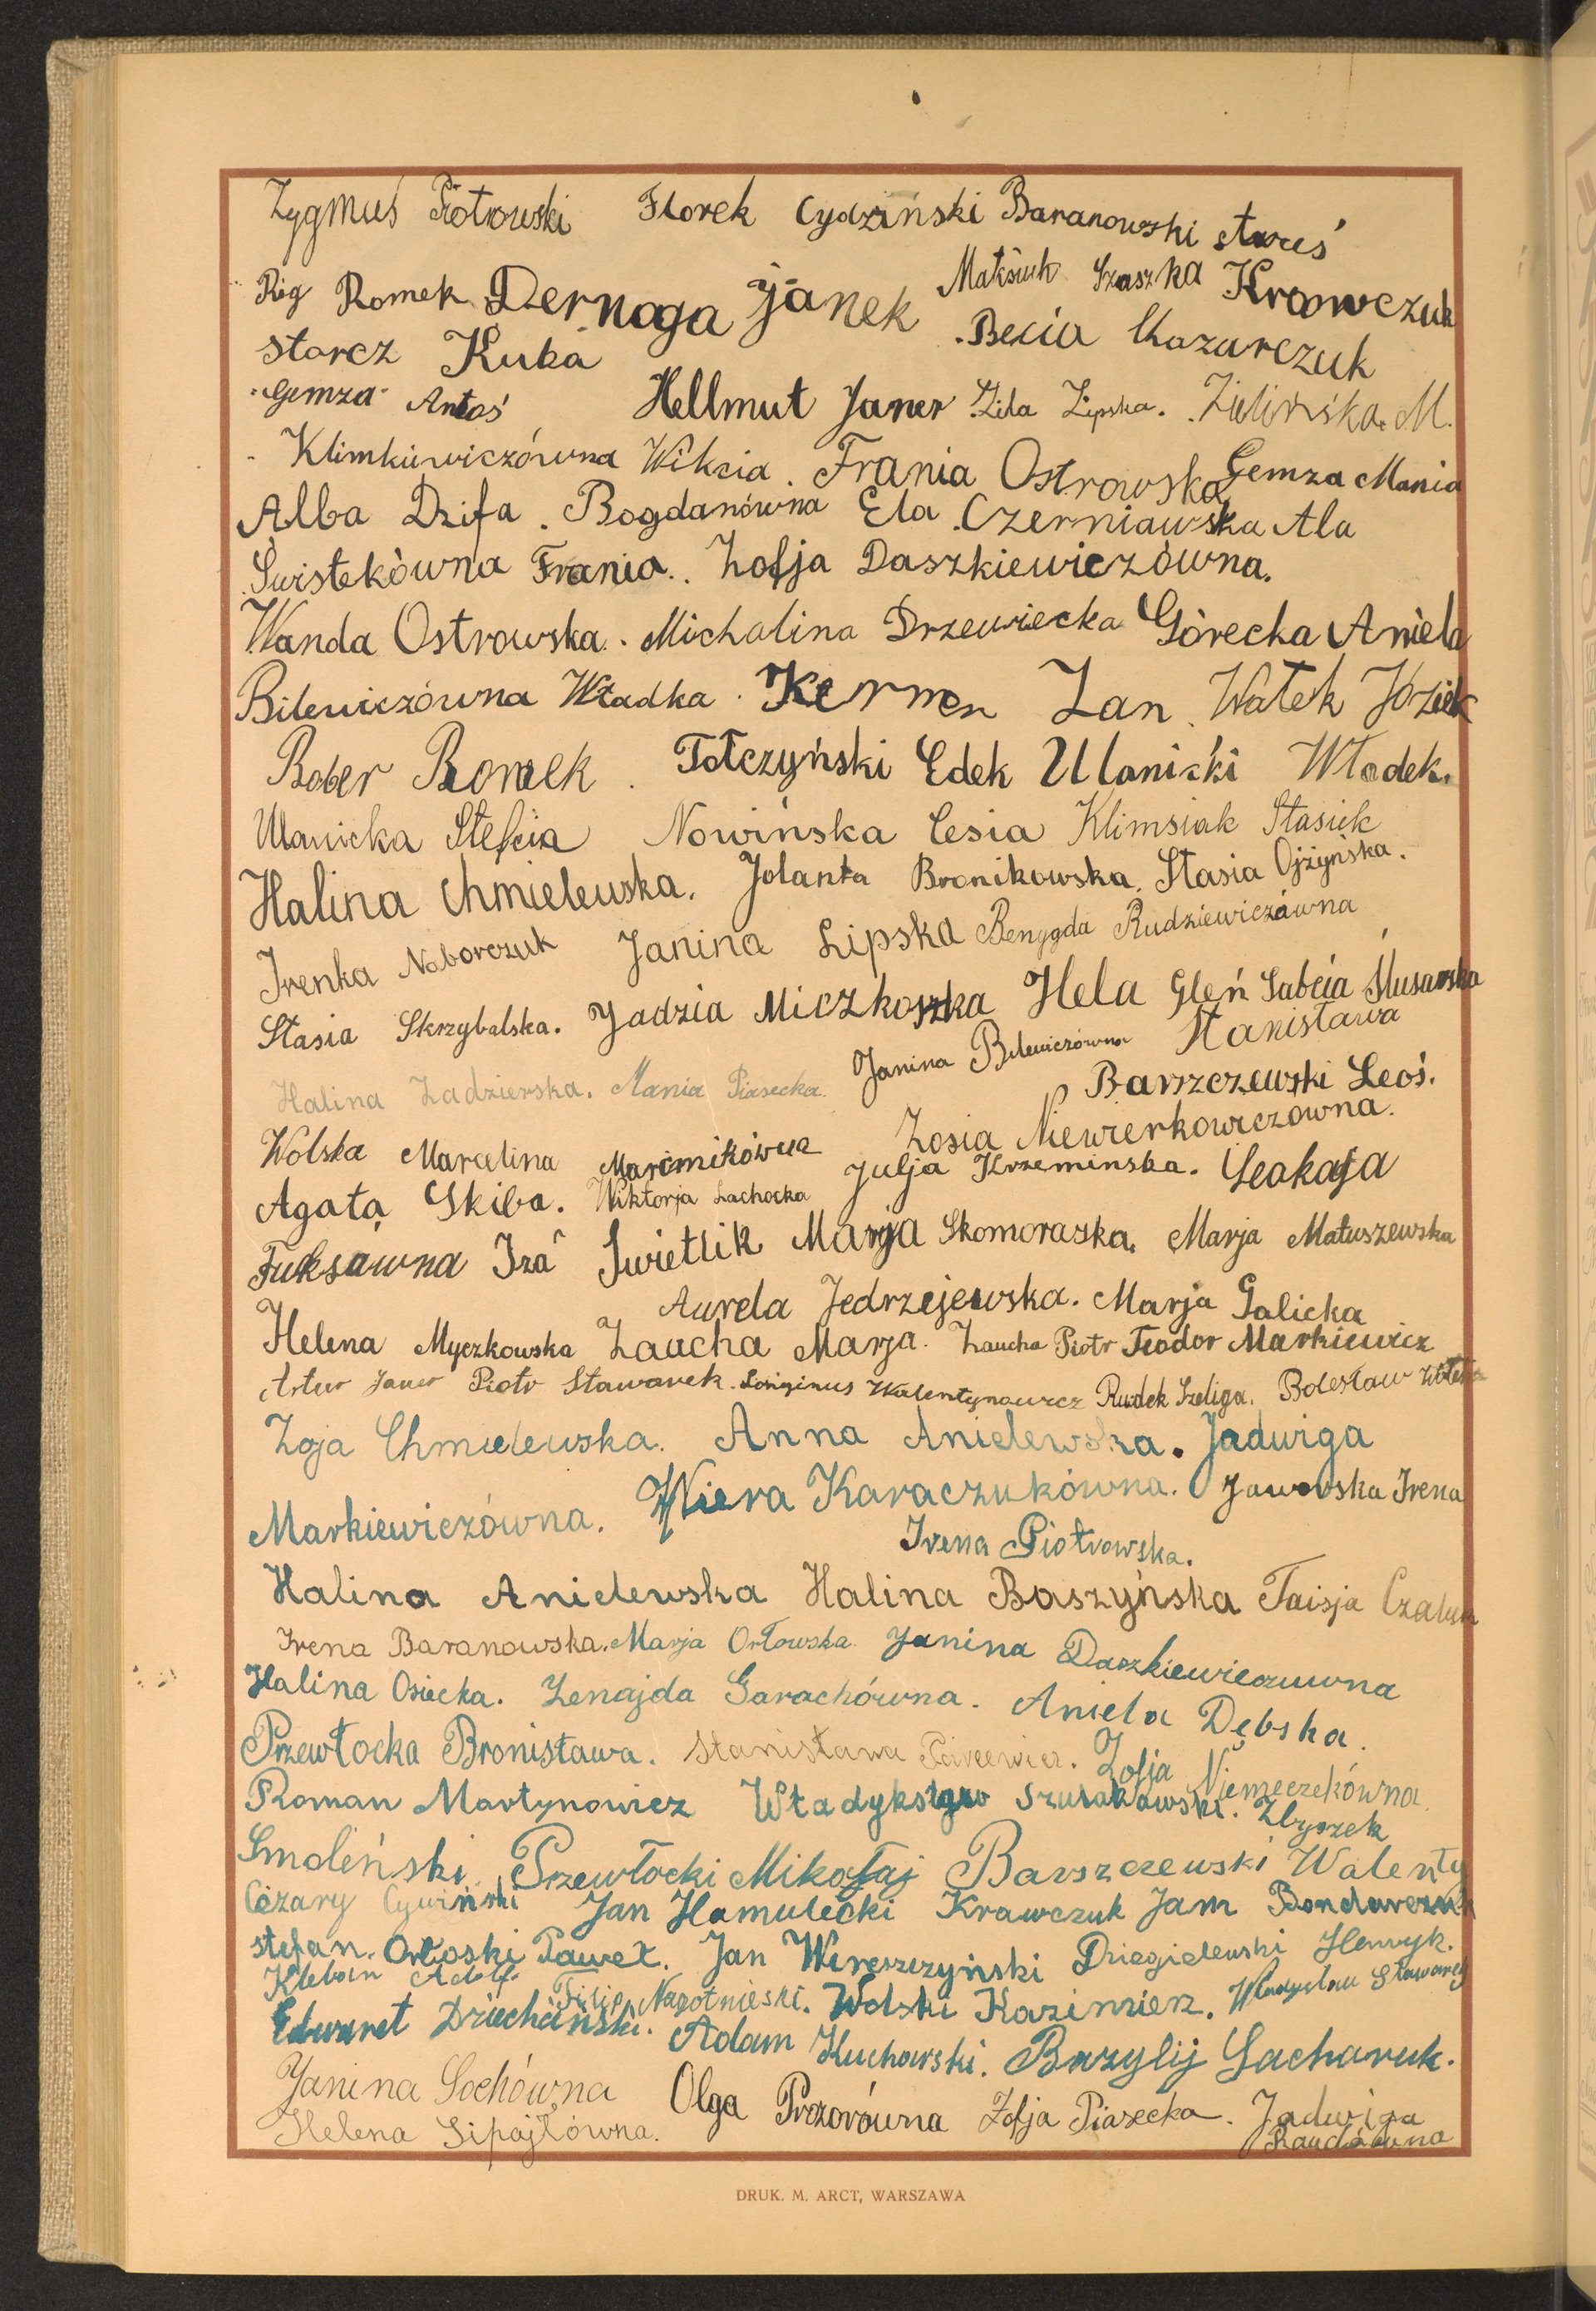 Zygmuś Piotrowski Florek Cydziński Baranowski
Róg Romek Dernoga Janek Szaszka Krawczuk
Starcz Kuba Becia Kazurczuk
Gemza Antoś Hellmut Janer Zila Lipska. Zielińska M.
Klimkiewiczówna Wikcia. Frania Ostrowska Gemza Mania
Alba Dzifa. Bogdanówna Ela. Czerniawska Ala
Świstekówna Frania.. Zofja Daszkiewiczówna.
Wanda Ostrowska. Michalina Drzewiecka Górecka Aniela
Bilewiczówna Władka. Kermen Zan. Wałek Józiek
Bober Romek. Tołczyński Edek Ulanicki Włodek.
Ulanicka Stefcia Nowińska Cesia Klimsiak Stasiek
Halina Chmielewska. Jolanta Bronikowska. Stasia Ojżyńska.
Irenka Naborczuk Janina Lipska Benygda Rudziewiczówna
Stasia Skrzybalska. Jadzia Miczkoszka Hela Gleń Sabcia Ślusarska
Halina Zadzierska. Mania Piasecka. Janina Bilewiczówna Stanisława
Barszczewski Leoś.
Wolska Marcelina Marcinikówna Zosia Niewierkowiczówna.
Agata Skiba. Wiktorja Lachocka Julja Krzemińska. Leokaja
Fuksówna Iza Świetlik Marja Skomoraszka. Marja Matuszewska
Aurela Jedrzejewska. Marja Galicka
Helena Myczkowska Zaucha Marja. Zaucha Piotr Teodor Markiewicz
Artur Janer Piotr Stawarek. Longinus Walentynowicz Rudek Szeliga. Bolesław
Zoja Chmielewska. Anna Anielewska. Jadwiga
Markiewiczówna. Wiera Karaczukówna. Jaworska Irena
Irena Piotrowska.
Halina Anielewska Halina Baszyńska Taisja Czaluk
Irena Baranowska. Marja Orłowska Janina Daszkiewiczuwna
Halina Osiecka. Zenajda Garachówna. Aniela Dębska.
Przewłocka Bronisława. Stanisława Zofja Niemeczekówna.
Roman Martynowicz Zbyszek
Smoleński. Przewłocki Mikołaj Barszczewski Walenty
Cezary Cywiński Jan Hamulecki Krawczuk Jam Bondarczuk
Stefan. Orłoski Paweł. Jan Wereszczyński Dziegielewski Henryk.
Kleban Adolf. Filip Wolski Kazimierz. Władysław Stawarek
Edwaret Dziechciński. Adam Kucharski. Bazylij Sacharuk.
Janina Sochówna Olga Prozorówna Zofja Piasecka. Jadwiga
Helena Lipajłówna.
DRUK. M. ARCT, WARSZAWA